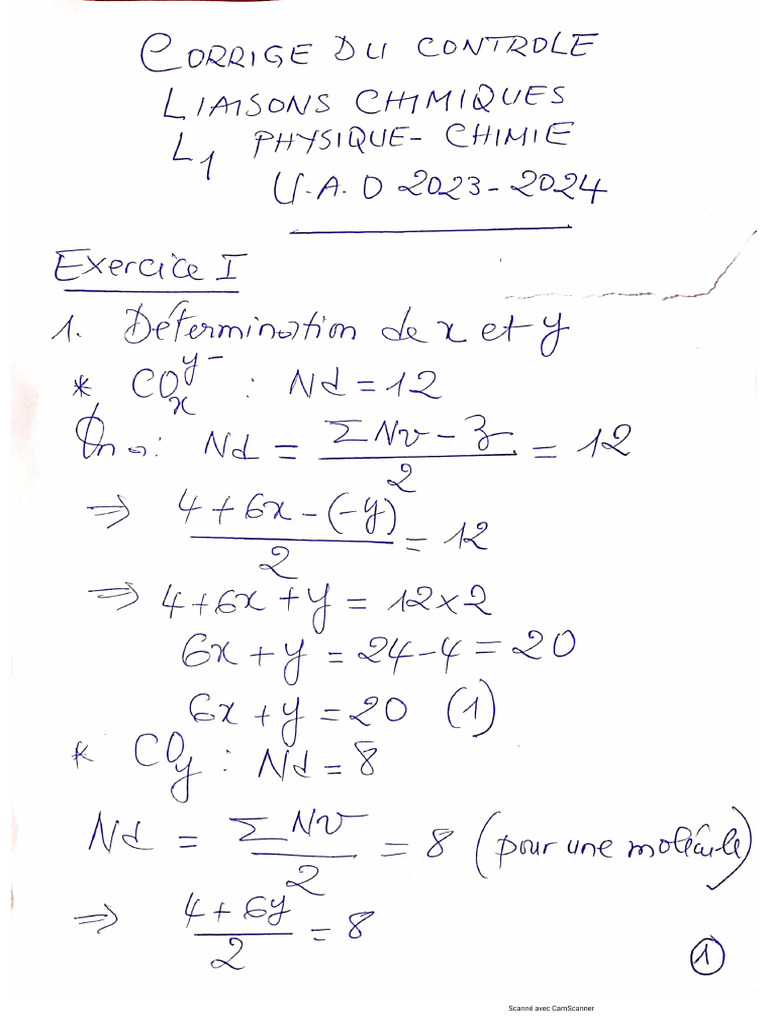 CORRIGE DU CONTROLE
LIAISONS CHIMIQUES
L1 PHYSIQUE-CHIMIE
U.A.D 2023-2024
Exercice I
1. Détermination de x et y
* COₓʸ⁻ : Nd = 12
On a: Nd = (ΣNv - z)/2 = 12
⇒ (4+6x-(-y))/2 = 12
⇒ 4+6x+y = 12×2
6x+y = 24-4 = 20
6x+y = 20 (1)
* CO_y : Nd = 8
Nd = ΣNv/2 = 8 (pour une molécule)
⇒ (4+6y)/2 = 8
1
Scanné avec CamScanner